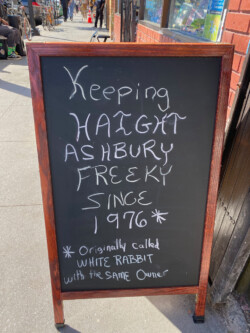 Keeping
HAIGHT
ASHBURY
FREEKY
SINCE
1976*
* Originally called
WHITE RABBIT
with the SAME Owner